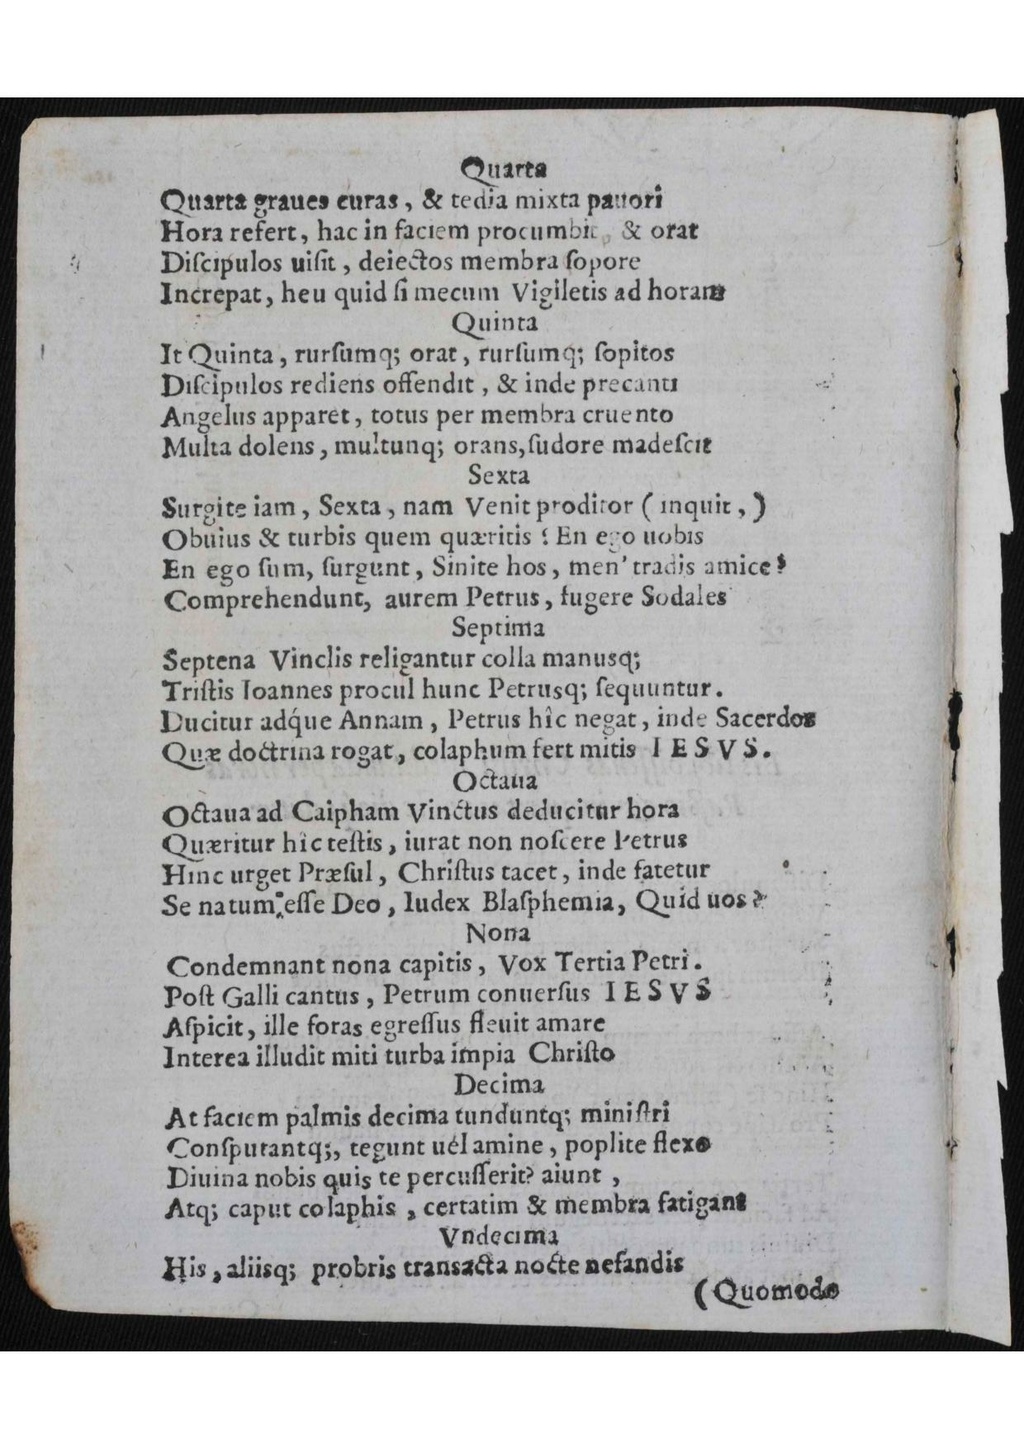 Quarta
Quarta graues curas, & tedia mixta pauori
Hora refert, hac in faciem procumbit, & orat
Diſcipulos uiſit, deiectos membra ſopore
Increpat, heu quid ſi mecum Vigiletis ad horam
Quinta
It Quinta, rurſumq; orat, rurſumq; ſopitos
Diſcipulos rediens offendit, & inde precanti
Angelus apparet, totus per membra cruento
Multa dolens, multunq; orans, ſudore madeſcit
Sexta
Surgite iam, Sexta, nam Venit proditor ( inquit, )
Obuius & turbis quem quæritis ? En ego uobis
En ego ſum, ſurgunt, Sinite hos, men' tradis amice?
Comprehendunt, aurem Petrus, fugere Sodales
Septima
Septena Vinclis religantur colla manusq;
Triſtis Ioannes procul hunc Petrusq; ſequuntur.
Ducitur adq́ue Annam, Petrus hîc negat, inde Sacerdos
Quæ doctrina rogat, colaphum fert mitis IESVS.
Octaua
Octaua ad Caipham Vinctus deducitur hora
Quæritur hîc teſtis, iurat non noſcere Petrus
Hinc urget Præſul, Chriſtus tacet, inde fatetur
Se natum eſſe Deo, Iudex Blaſphemia, Quid uos?
Nona
Condemnant nona capitis, Vox Tertia Petri.
Poſt Galli cantus, Petrum conuerſus IESVS
Aſpicit, ille foras egreſſus fleuit amare
Interea illudit miti turba impia Chriſto
Decima
At faciem palmis decima tunduntq; miniſtri
Conſputantq;, tegunt uélamine, poplite flexo
Diuina nobis quis te percuſſerit? aiunt,
Atq; caput colaphis, certatim & membra fatigant
Vndecima
His, aliisq; probris transacta nocte nefandis
(Quomodo